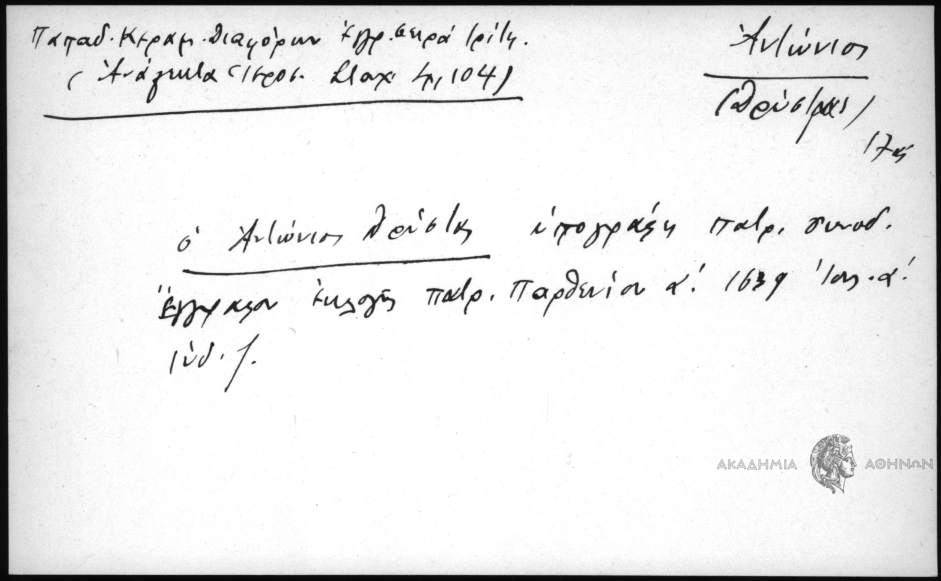 Παπαδ. Κεραμ. Διαφόρων Ἐγγρ. σειρά τρίτη.
(Ἀνάλεκτα Ἱεροσ. Σταχ. 4, 104)
Ἀντώνιος
(Δρύστρας)
17ος
ὁ Ἀντώνιος Δρύστας ὑπογράφει πατρ. συνοδ.
Ἔγγραφον ἐκλογῆς πατρ. Παρθενίου α΄. 1639 Ἰουλ. α΄.
ἰνδ. ζ.
ΑΚΑΔΗΜΙΑ ΑΘΗΝΩΝ